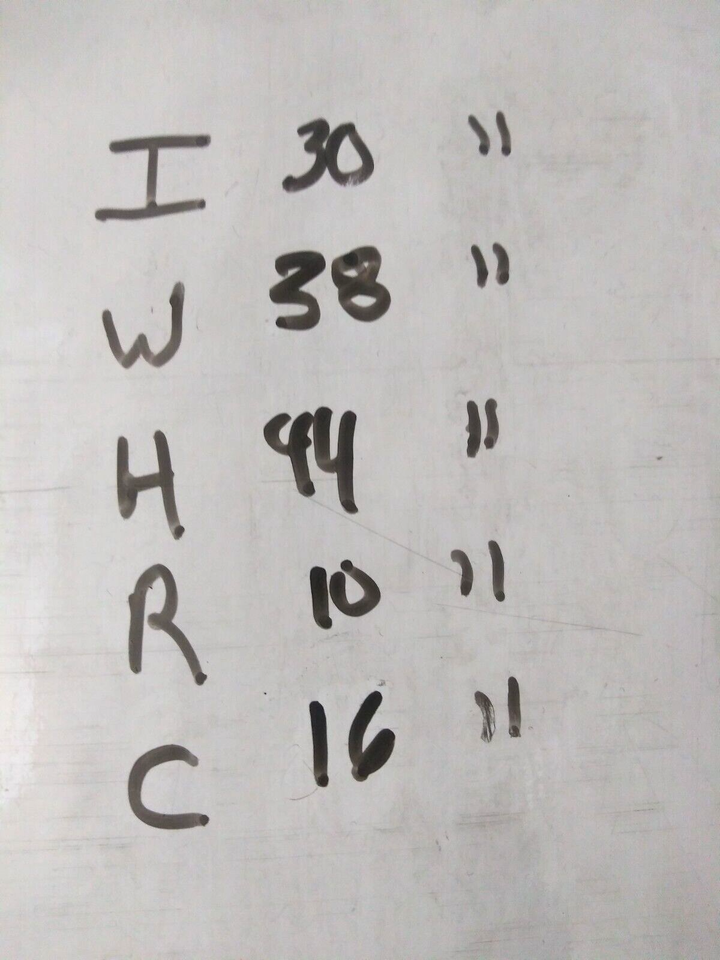 I 30 "
W 38 "
H 44 "
R 10 "
C 16 "